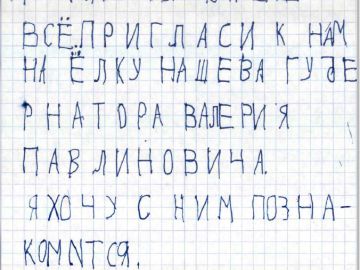 ВСЁ.ПРИГЛАСИ К НАМ
НА ЁЛКУ НАШЕВА ГУБЕ
РНАТОРА ВАЛЕРИЯ
ПАВЛИНОВИЧА.
Я ХОЧУ С НИМ ПОЗНА-
КОМИТСЯ.